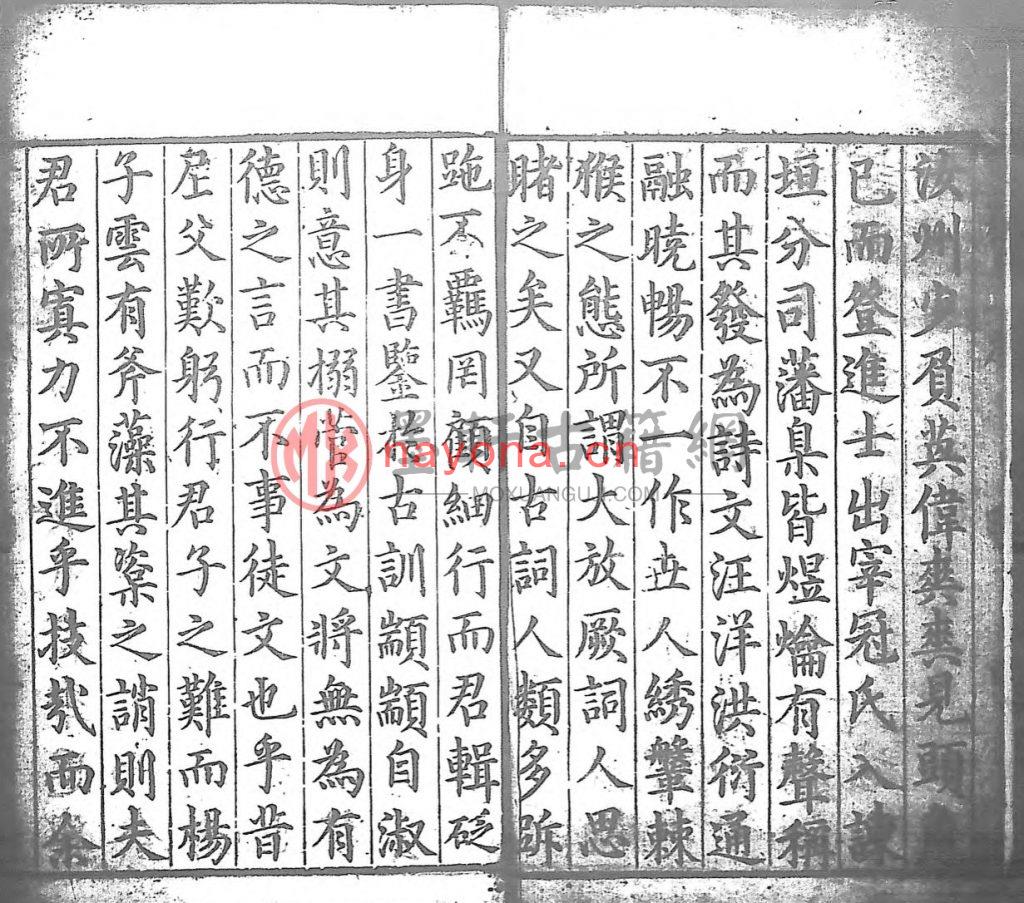 汝州少負英偉爽爽見頭
已而登進士出宰冠氏入諫
垣分司藩臬皆煜爚有聲稱
而其發為詩文汪洋洪衍通
融曉暢不一作世人綉鞶棘
猴之態所謂大放厥詞人思
睹之矣又自古詞人類多跅
跎不羈罔顧細行而君輯砭
身一書鑒古訓顓顓自淑
則意其搦管為文將無為有
德之言而不事徒文也乎昔
尼父歎躬行君子之難而楊
子雲有斧藻其楶之誚則夫
君所寘力不進乎技哉而余
墨軒古籍網
nayona.cn
MOXUANGUJI.COM